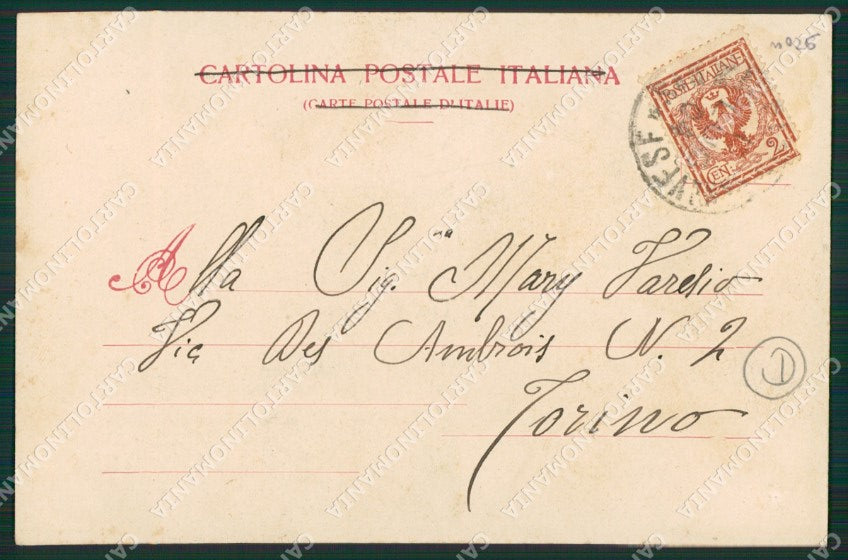 nº 26
CARTOLINA POSTALE ITALIANA
(CARTE POSTALE D'ITALIE)
POSTE ITALIANE
CEN. 2
Alla Sig.na Mary Varesio
Via Des Ambrois N. 2
Torino
D
CARTOLINOMANIA